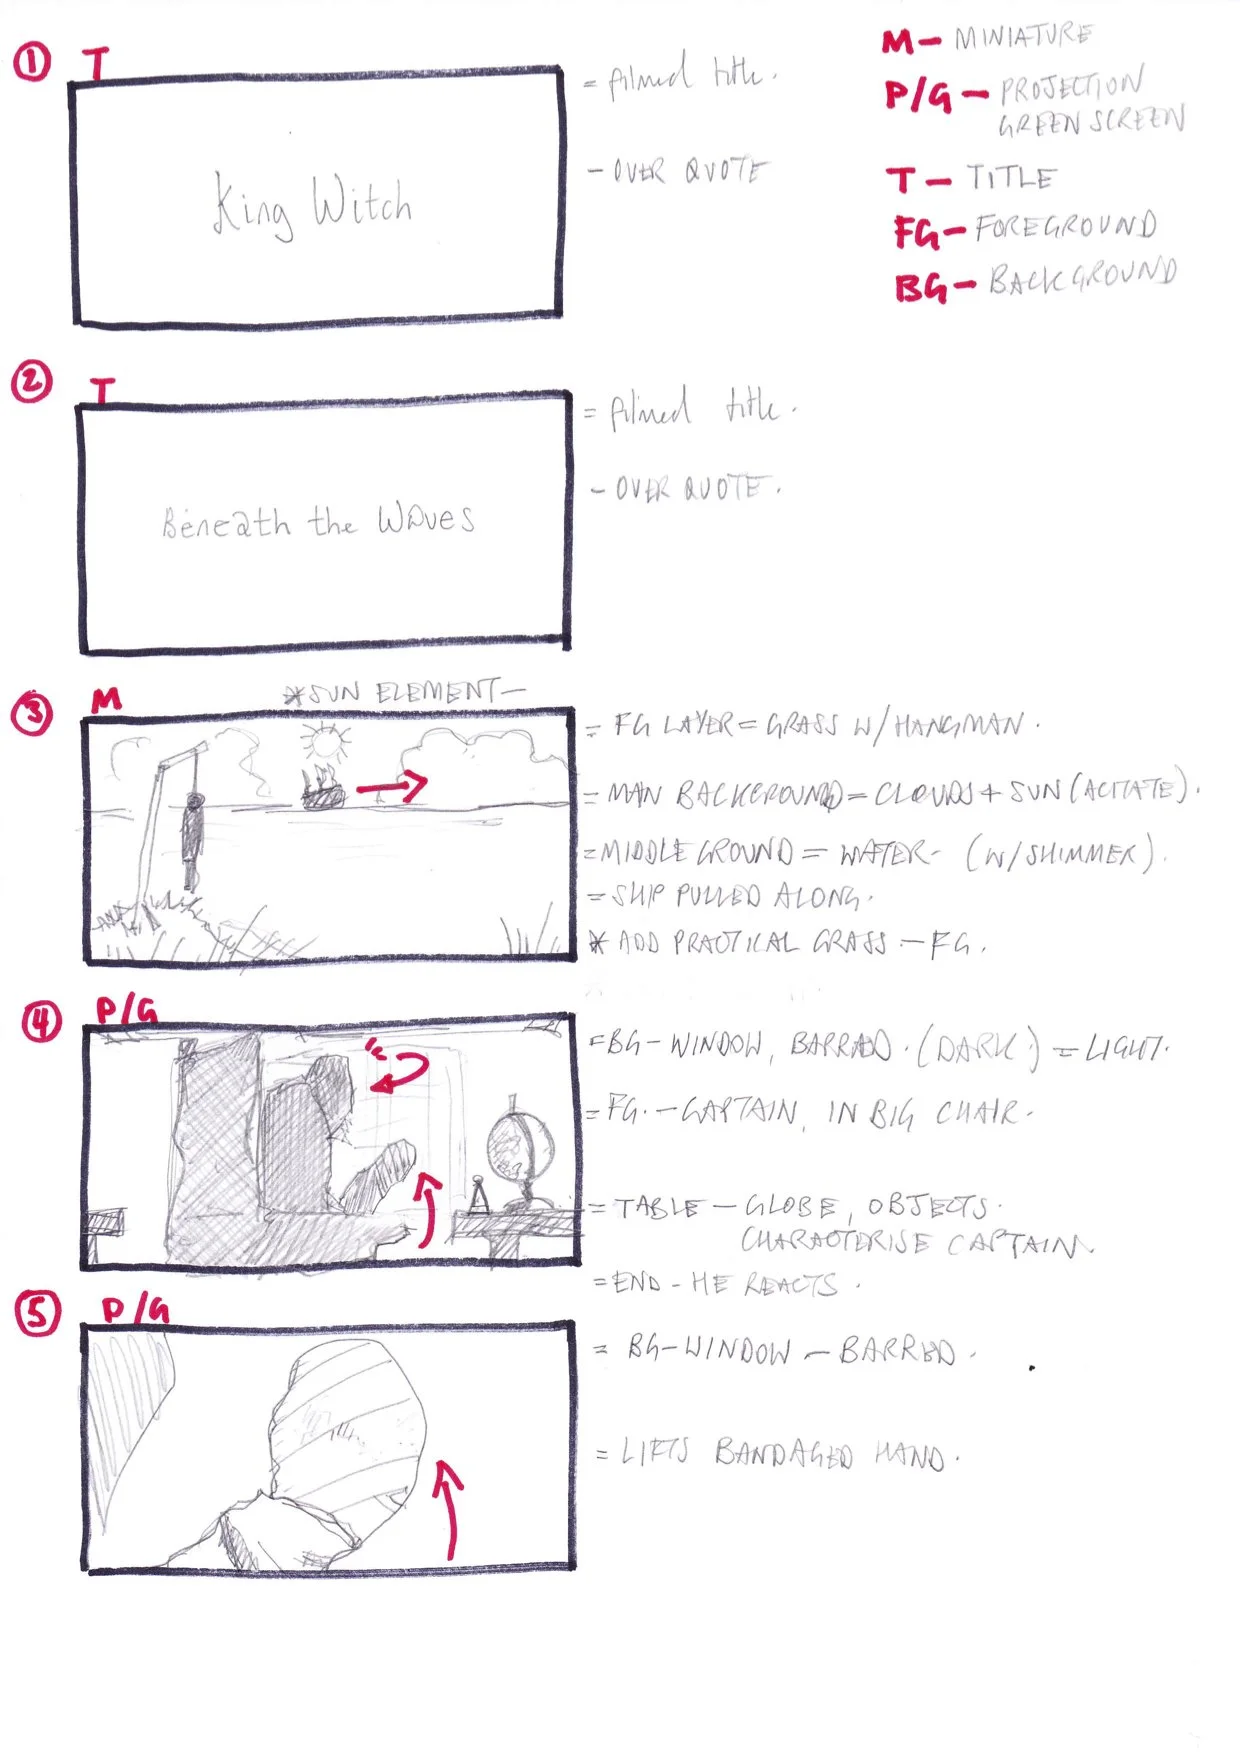 M - MINIATURE
P/G - PROJECTION
GREEN SCREEN
T - TITLE
FG - FOREGROUND
BG - BACKGROUND
1 T
King Witch
= filmed title.
- OVER QUOTE
2 T
Beneath the Waves
= filmed title.
- OVER QUOTE.
3 M
*SUN ELEMENT -
= FG LAYER = GRASS W/HANGMAN.
= MAN BACKGROUND = CLOUDS + SUN (ACITATE).
= MIDDLE GROUND = WATER - (W/SHIMMER).
= SHIP PULLED ALONG.
* ADD PRACTICAL GRASS - FG.
4 P/G
= BG - WINDOW, BARRED. (DARK) = LIGHT.
= FG. - CAPTAIN, IN BIG CHAIR.
= TABLE - GLOBE, OBJECTS.
CHARACTERISE CAPTAIN.
= END - HE REACTS.
5 P/G
= BG - WINDOW - BARRED.
= LIFTS BANDAGED HAND.